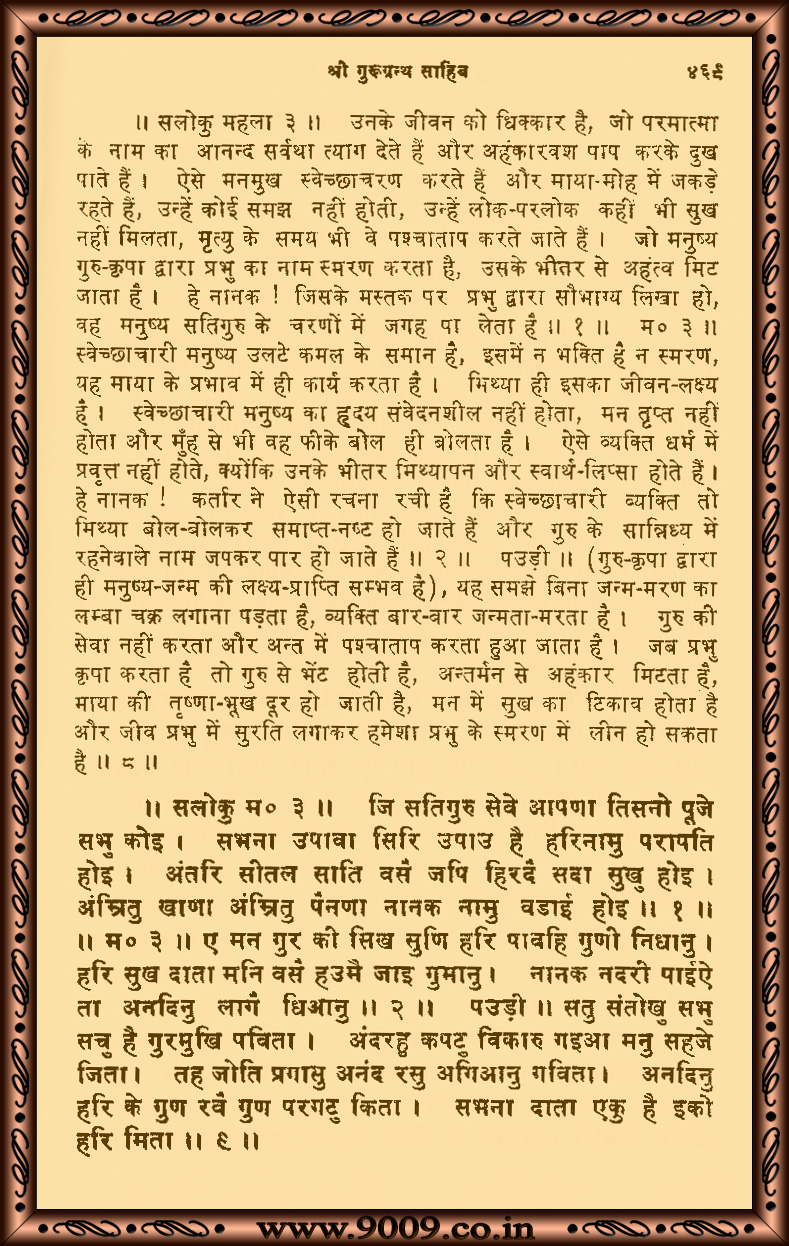 श्री गुरूग्रन्थ साहिब ४६९
॥ सलोकु महला ३ ॥ उनके जीवन को धिक्कार है, जो परमात्मा
के नाम का आनन्द सर्वथा त्याग देते हैं और अहंकारवश पाप करके दुख
पाते हैं । ऐसे मनमुख स्वेच्छाचरण करते हैं और माया-मोह में जकड़े
रहते हैं, उन्हें कोई समझ नहीं होती, उन्हें लोक-परलोक कहीं भी सुख
नहीं मिलता, मृत्यु के समय भी वे पश्चाताप करते जाते हैं । जो मनुष्य
गुरु-कृपा द्वारा प्रभु का नाम स्मरण करता है, उसके भीतर से अहंत्व मिट
जाता है । हे नानक ! जिसके मस्तक पर प्रभु द्वारा सौभाग्य लिखा हो,
वह मनुष्य सतिगुरु के चरणों में जगह पा लेता है ॥ १ ॥ म० ३ ॥
स्वेच्छाचारी मनुष्य उलटे कमल के समान है, इसमें न भक्ति है न स्मरण,
यह माया के प्रभाव में ही कार्य करता है । मिथ्या ही इसका जीवन-लक्ष्य
है । स्वेच्छाचारी मनुष्य का हृदय संवेदनशील नहीं होता, मन तृप्त नहीं
होता और मुँह से भी वह फीके बोल ही बोलता है । ऐसे व्यक्ति धर्म में
प्रवृत्त नहीं होते, क्योंकि उनके भीतर मिथ्यापन और स्वार्थ-लिप्सा होते हैं ।
हे नानक ! कर्तार ने ऐसी रचना रची है कि स्वेच्छाचारी व्यक्ति तो
मिथ्या बोल-बोलकर समाप्त-नष्ट हो जाते हैं और गुरु के सान्निध्य में
रहनेवाले नाम जपकर पार हो जाते हैं ॥ २ ॥ पउड़ी ॥ (गुरु-कृपा द्वारा
ही मनुष्य-जन्म की लक्ष्य-प्राप्ति सम्भव है), यह समझे बिना जन्म-मरण का
लम्बा चक्र लगाना पड़ता है, व्यक्ति बार-बार जन्मता-मरता है । गुरु की
सेवा नहीं करता और अन्त में पश्चाताप करता हुआ जाता है । जब प्रभु
कृपा करता है तो गुरु से भेंट होती है, अन्तर्मन से अहंकार मिटता है,
माया की तृष्णा-भूख दूर हो जाती है, मन में सुख का टिकाव होता है
और जीव प्रभु में सुरति लगाकर हमेशा प्रभु के स्मरण में लीन हो सकता
है ॥ ८ ॥
॥ सलोकु म० ३ ॥ जि सतिगुरु सेवे आपणा तिसनो पूजे
सभु कोइ । सभना उपावा सिरि उपाउ है हरिनामु परापति
होइ । अंतरि सीतल साति वसै जपि हिरदै सदा सुखु होइ ।
अंम्रितु खाणा अंम्रितु पैनणा नानक नामु वडाई होइ ॥ १ ॥
॥ म० ३ ॥ ए मन गुर की सिख सुणि हरि पावहि गुणी निधानु ।
हरि सुख दाता मनि वसै हउमै जाइ गुमानु । नानक नदरी पाईऐ
ता अनदिनु लागै धिआनु ॥ २ ॥ पउड़ी ॥ सतु संतोखु सभु
सचु है गुरमुखि पविता । अंदरहु कपटु विकारु गइआ मनु सहजे
जिता । तह जोति प्रगासु अनंद रसु अगिआनु गविता । अनदिनु
हरि के गुण रवै गुण परगटु किता । सभना दाता एकु है इको
हरि मिता ॥ ९ ॥
www.9009.co.in